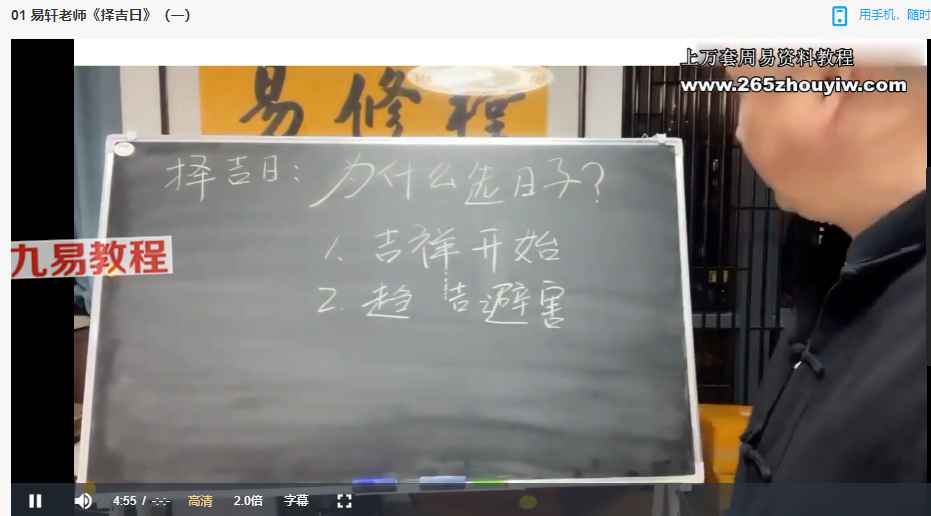 01 易轩老师《择吉日》（一）
用手机、随时
上万套周易资料教程
www.265zhouyiw.com
易修程
择吉日：为什么选日子？
1. 吉祥开始
九易教程
2. 趋吉避害
4:55 / -:-:- 高清 2.0倍 字幕